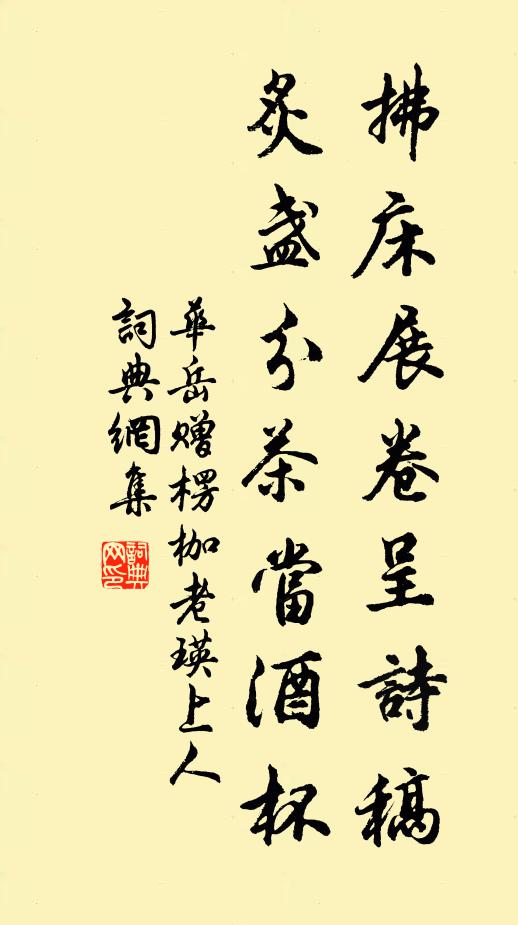 拂床展卷呈詩稿
炙盞分茶當酒杯
華岳赠楞枷老瑛上人
詞典網集
詞典网印